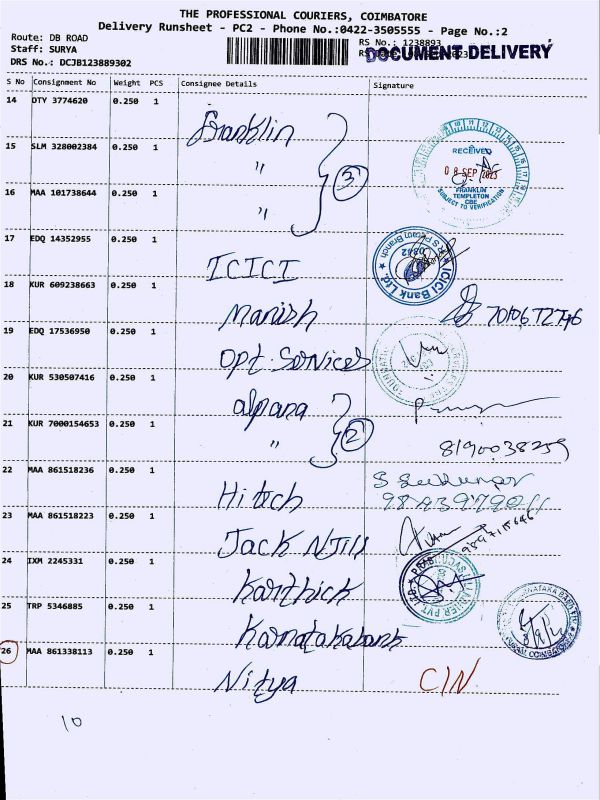 THE PROFESSIONAL COURIERS, COIMBATORE
Delivery Runsheet - PC2 - Phone No.:0422-3505555 - Page No.:2
Route: DB ROAD
RS No.: 1238893
Staff: SURYA
DOCUMENT DELIVERY
DRS No.: DCJB123889302
S No Consignment No Weight PCS Consignee Details Signature
14 DTY 3774620 0.250 1 Franklin
15 SLM 328002384 0.250 1 "
16 MAA 101738644 0.250 1 "
3
RECEIVED
08 SEP 2023
FRANKLIN
TEMPLETON
CBE
SUBJECT TO VERIFICATION
17 EDQ 14352955 0.250 1 ICICI
ICICI Bank Ltd.
0842
18 KUR 609238663 0.250 1 Manish
19 EDQ 17536950 0.250 1 Opt. Services
20 KUR 530507416 0.250 1 alpana
21 KUR 7000154653 0.250 1 "
2
8190038259
22 MAA 861518236 0.250 1 Hitech
23 MAA 861518223 0.250 1 Jack N Jill
24 IXM 2245331 0.250 1 Karthick
25 TRP 5346885 0.250 1 Karnatakabank
26 MAA 861338113 0.250 1 Nitya
CIN
10